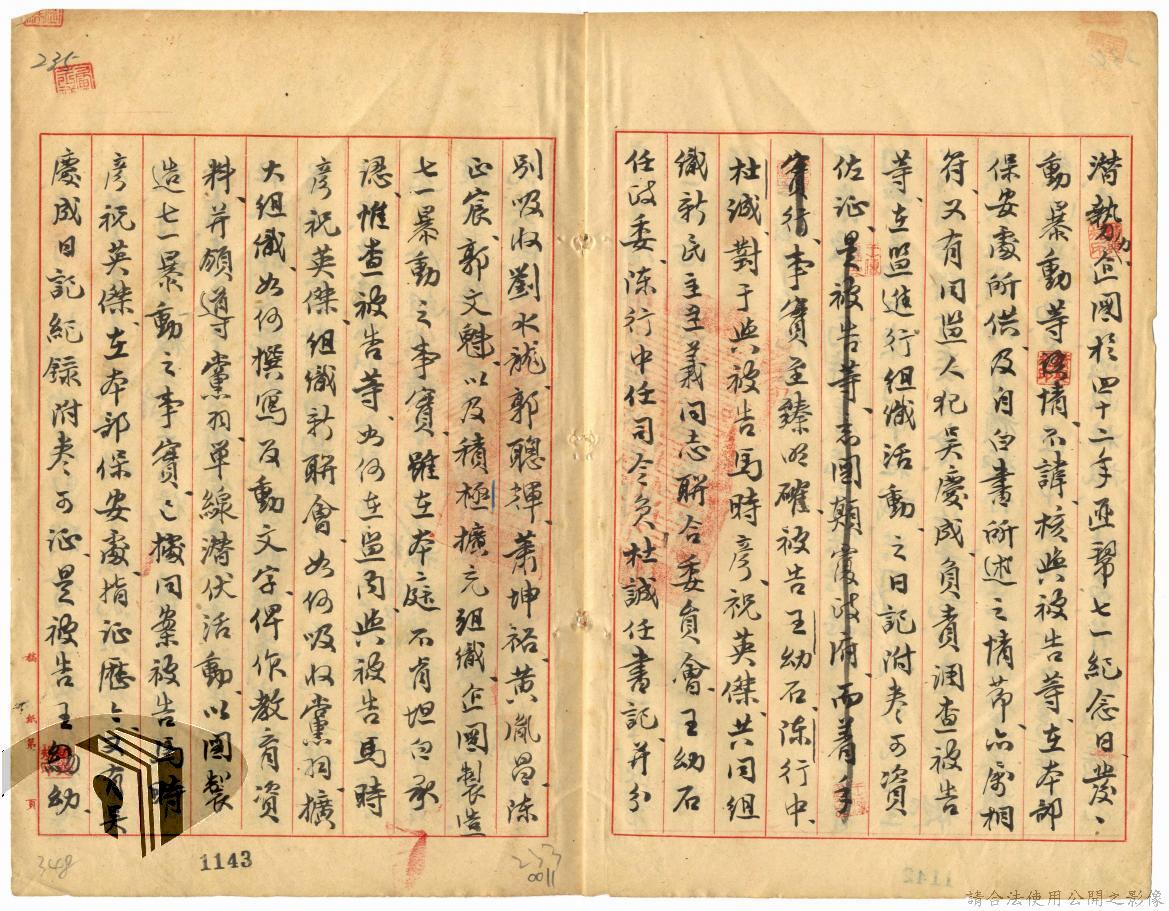 潛勢、企圖於四十二年匪幫七一紀念日發、
動暴動等情不諱、核與被告等、在本部
保安處所供、及自白書所述之情節、亦屬相
符、又有同監人犯吳慶成、負責調查被告
等、在監進行組織活動、之日記附卷可資
佐証、是被告等、意圖顛覆政府、而着手
實行、事實至臻明確、被告王幼石、陳行中、
杜誠、對于與被告馬時彥、祝英傑、共同組
織新民主主義同志聯合委員會、王幼石
任政委、陳行中任司令員、杜誠任書記、并分
別吸收劉水龍、郭聰輝、蕭坤裕、黃胤昌、陳
正宸、郭文魁、以及積極擴充組織、企圖製造
七一暴動之事實、雖在本庭不肯坦白承
認、惟查被告等、如何在監內與被告馬時
彥祝英傑、組織新聯會、如何吸收黨羽、擴
大組織、如何撰寫反動文字、俾作教育資
料、并領導黨羽、單線潛伏活動、以圖製
造七一暴動之事實、已據同案被告馬時
彥祝英傑、在本部保安處、指証歷歷、又有吳
慶成日記紀錄附卷可証、是被告王幼
235
348
1143
233
0011
1142
稿紙第 頁
請合法使用公開之影像